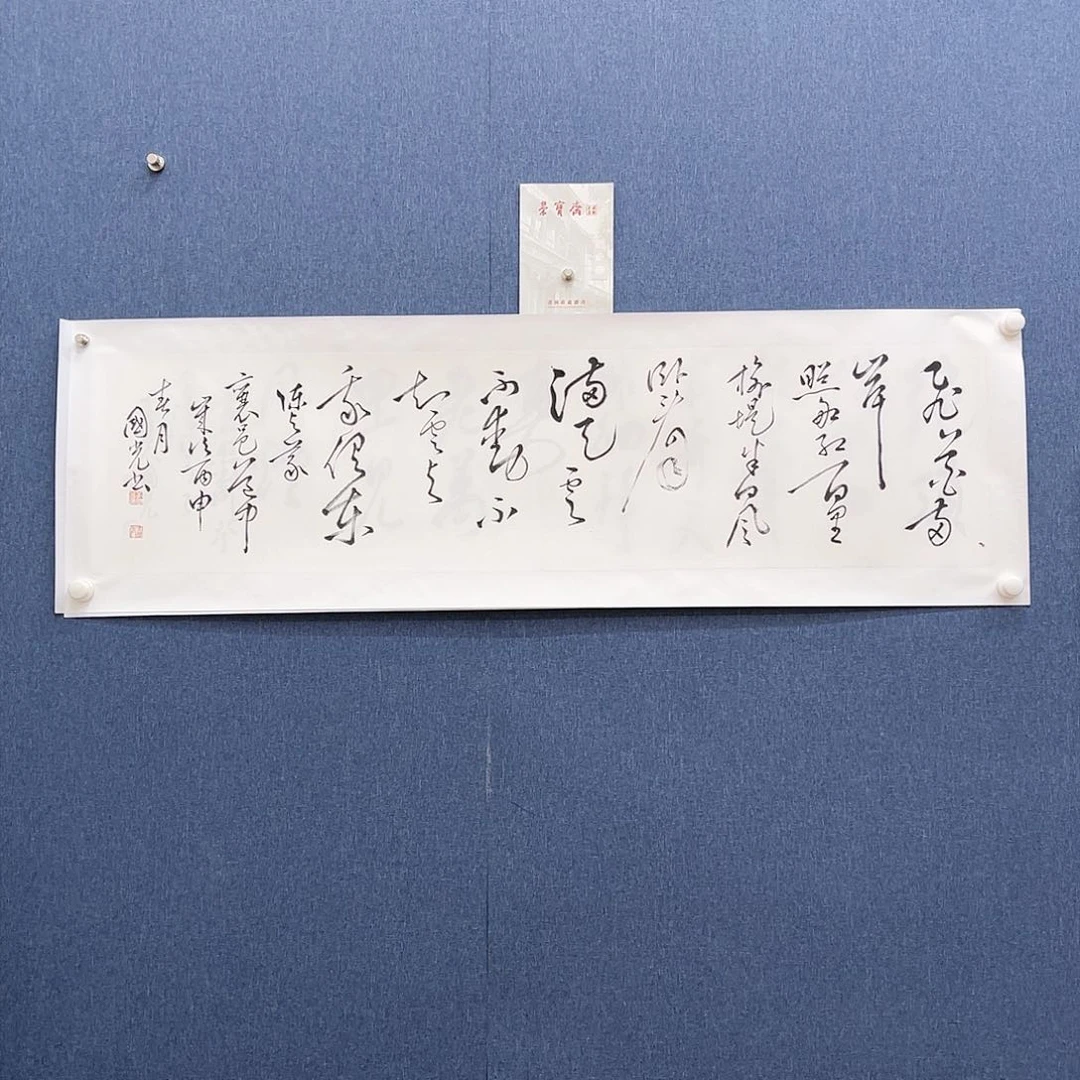 榮寶齋
飛花兩
岸
照船紅百里
榆堤半日風
卧看
滿天雲
不動不
知雲與
我俱東
陳與義
襄邑道中
歲次丙申
春月
國光書